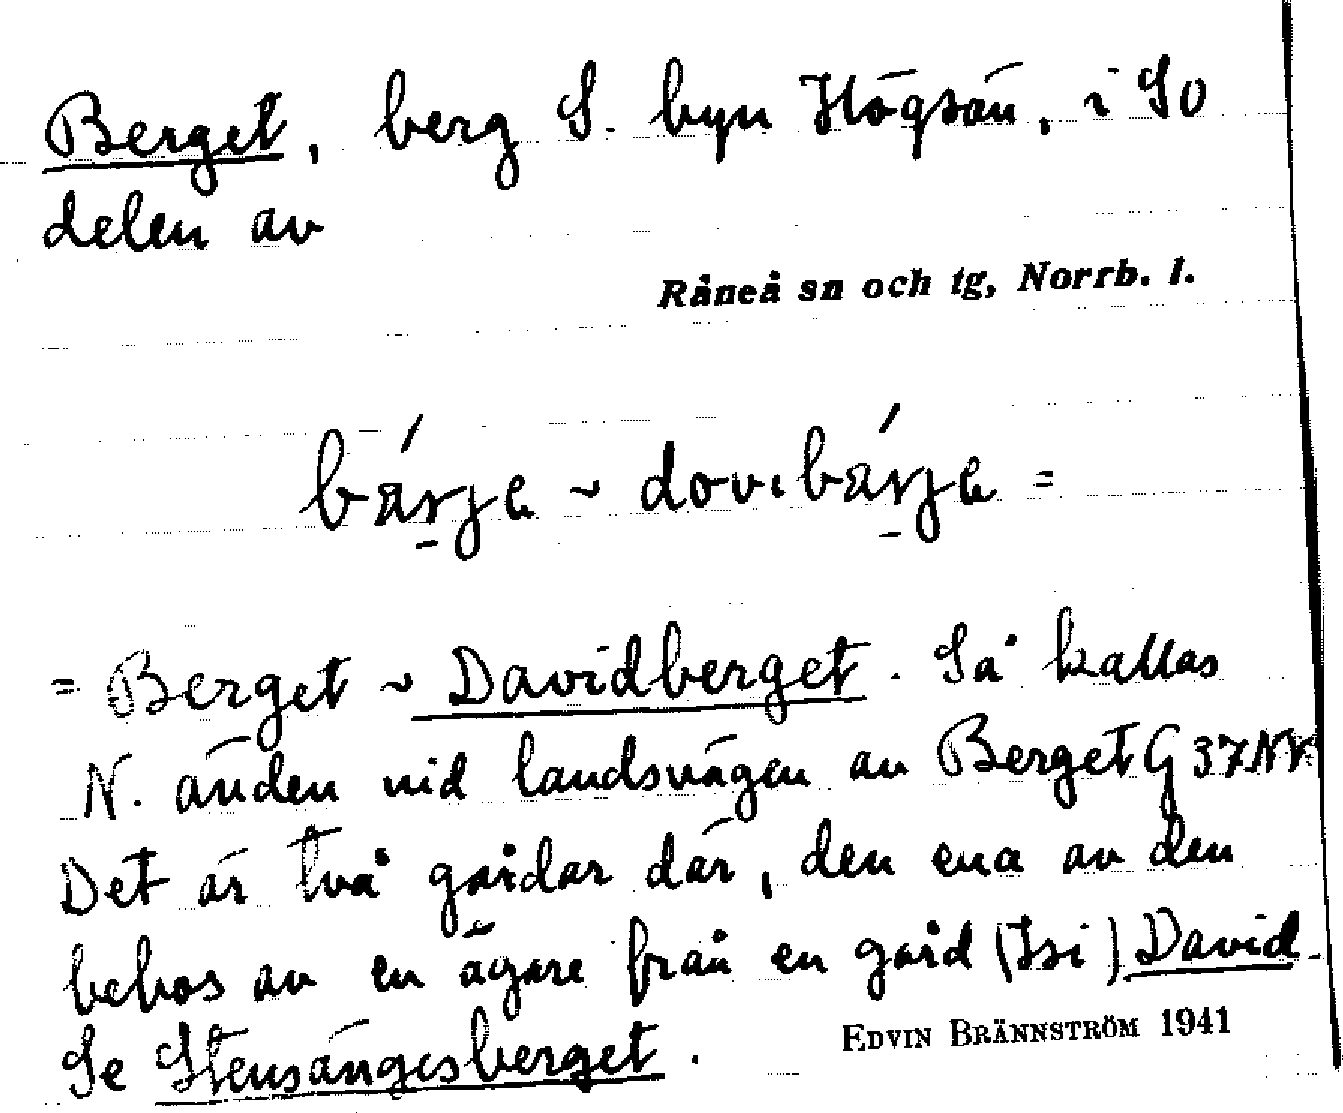 Berget, berg S. byn Högsön, i SO
delen av
Råneå sn och tg, Norrb. l.
bárje ~ dovibárje =
= Berget ~ Davidberget. Så kallas
N. änden vid landsvägen av Berget G 37 NV
Det är två gårdar där, den ena av dem
bebos av en ägare från en gård (Isi) David-
Se Stensängsberget.
EDVIN BRÄNNSTRÖM 1941